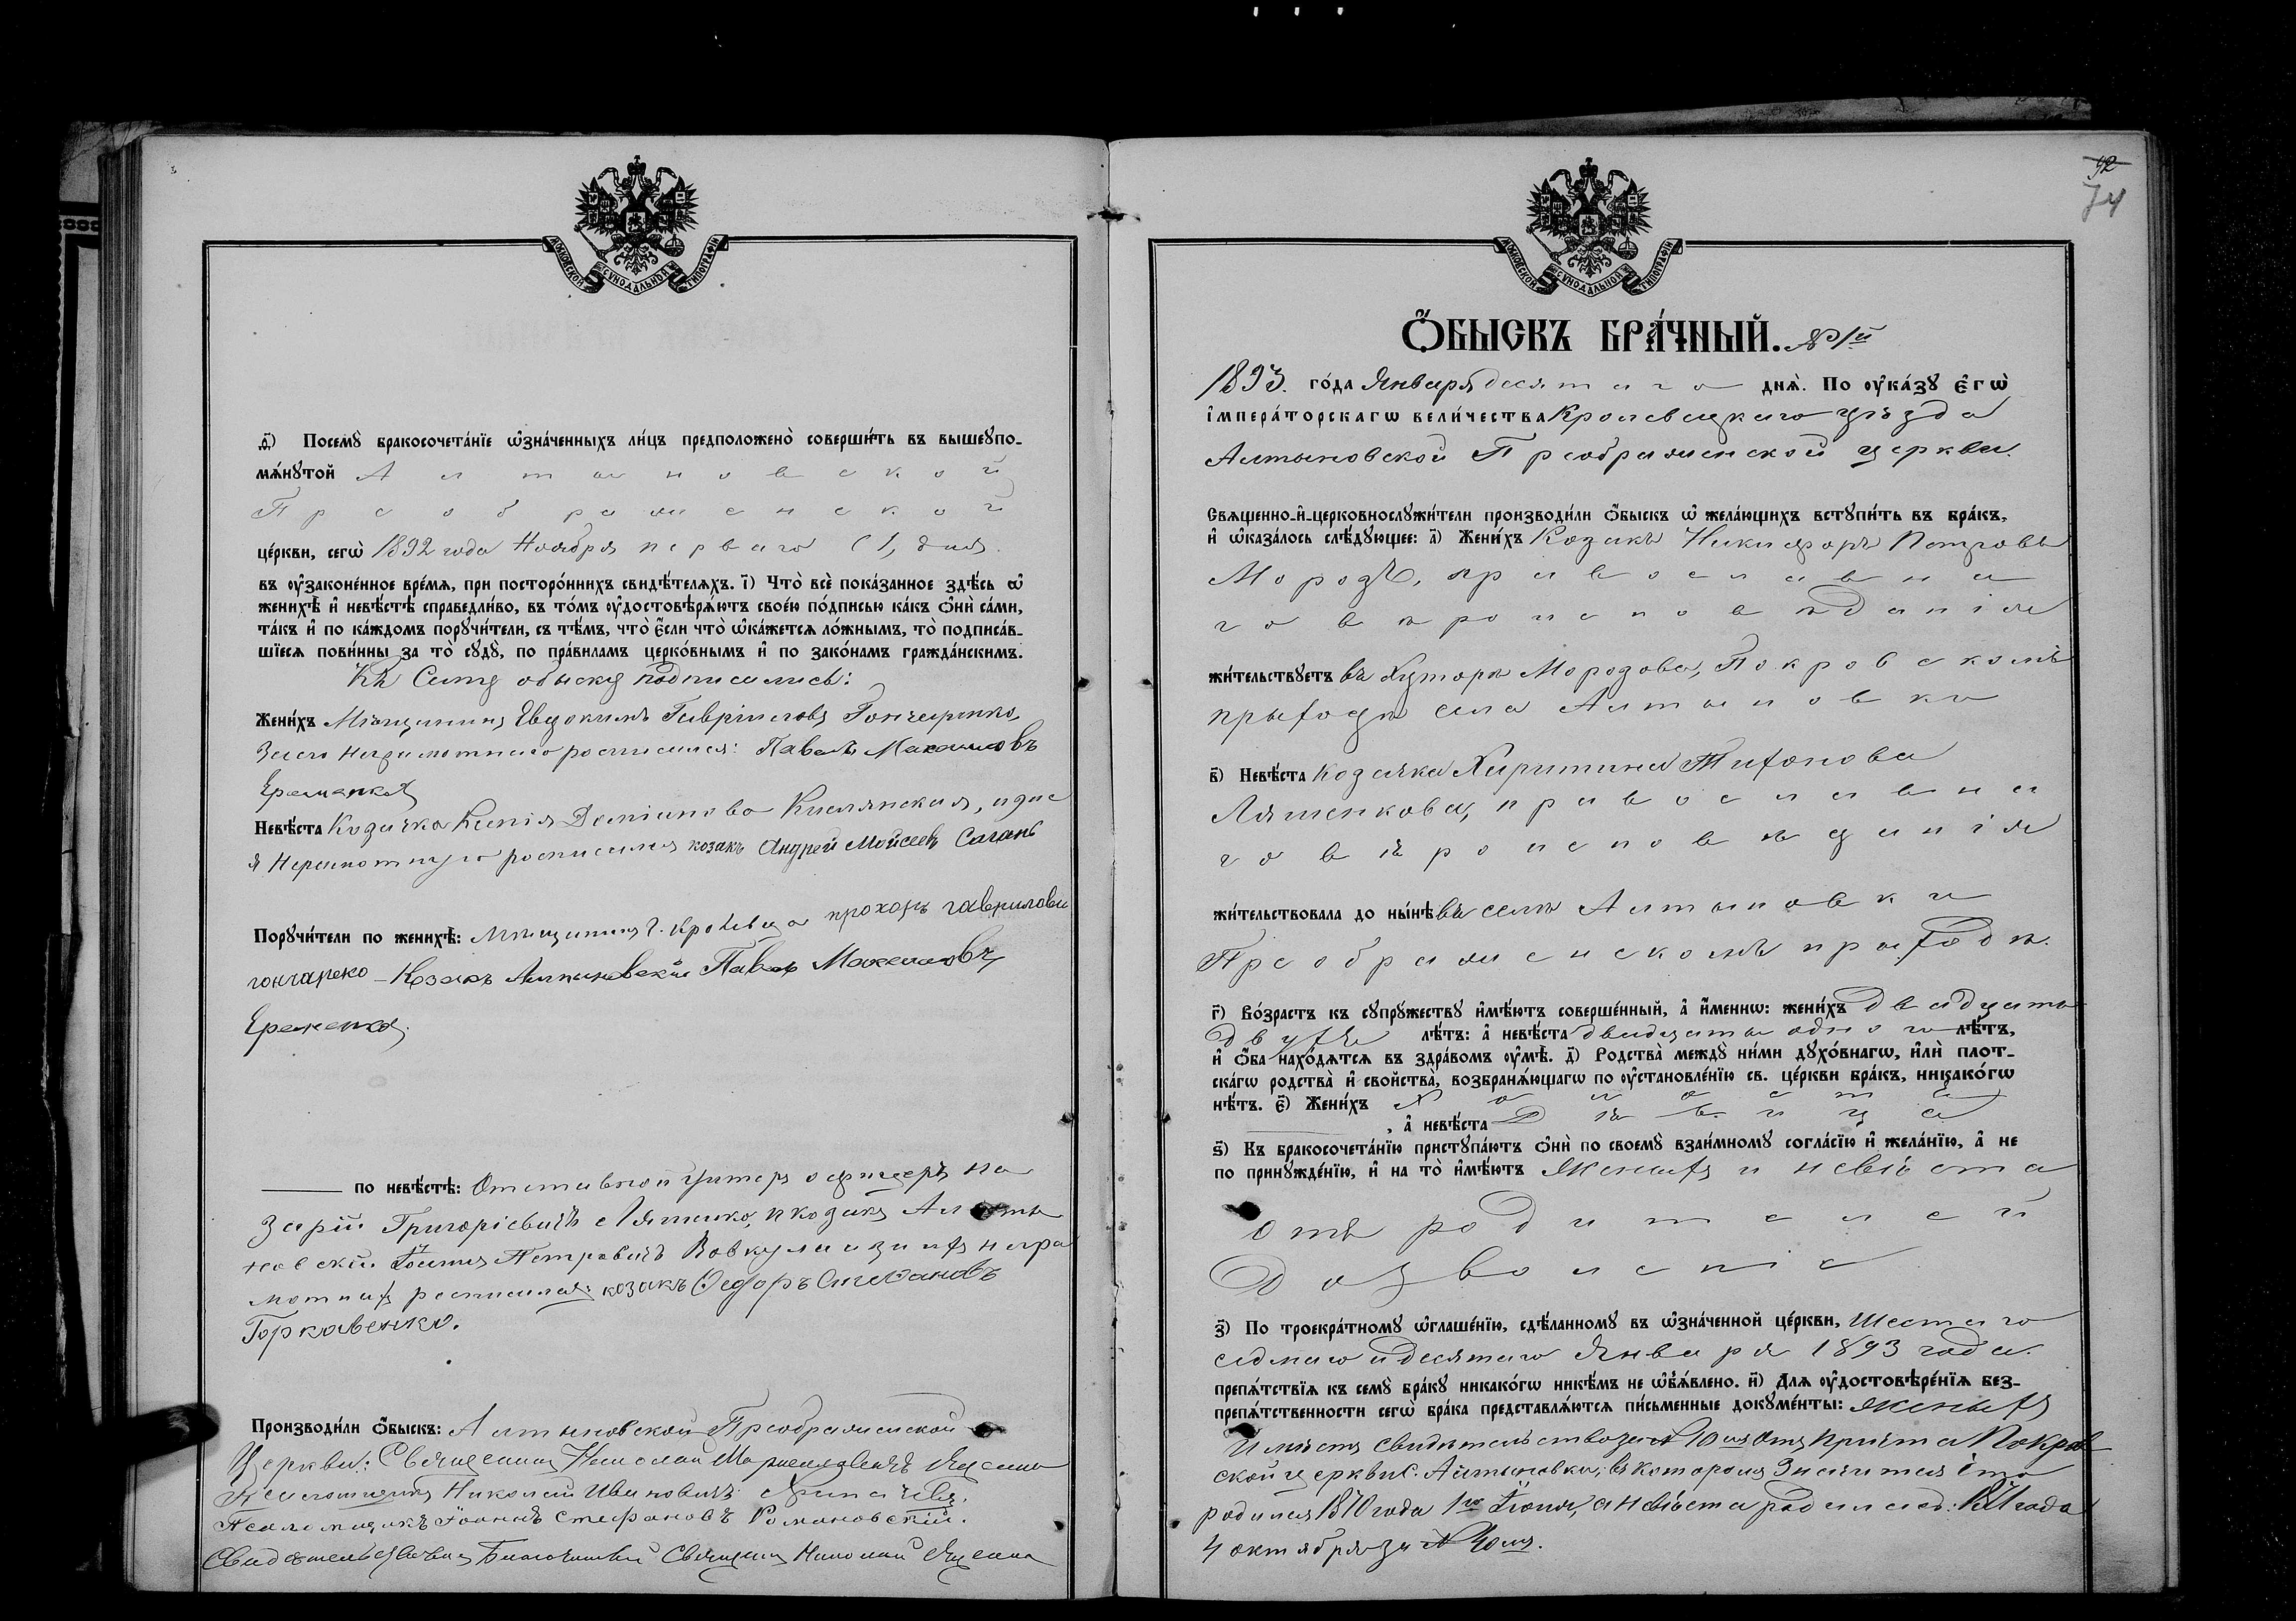 МОСКОВСКОЙ СѴНОДАЛЬНОЙ ТИПОГРАФІИ
д҃і) Посемꙋ̀ бракосочета́нїе ѡ҆зна́ченныхъ ли́цъ предположено̀ соверши́ть въ вышеꙋпо-
мѧ́нꙋтой Алтыновской
Преображенской
це́ркви, сегѡ̀ 1892 года Ноября перваго (1) дня.
въ ᲂу҆зако́ненное вре́мѧ, при посторо́ннихъ свидѣ́телѧхъ. і҃) Что̀ всѐ пока́занное здѣ́сь ѡ҆
женихѣ̀ и҆ невѣ́стѣ справедли́во, въ то́мъ ᲂу҆достовѣрѧ́ютъ свое́ю по́дписью ка́къ ѻ҆нѝ са́ми,
та́къ и҆ по ка́ждомъ порꙋчи́тели, съ тѣ́мъ, что̀ є҆́сли что̀ ѡ҆ка́жетсѧ ло́жнымъ, то̀ подписа́в-
шїесѧ пови́нны за то̀ сꙋдꙋ̀, по пра́виламъ церко́внымъ и҆ по зако́намъ гражда́нскимъ.
Къ Сему обыску подписались:
Жени́хъ Мѣщанинъ Евдокимъ Гавріиловъ Гончаренко,
За его неграмотнаго росписался: Павелъ Максимовъ
Еременко
Невѣ́ста Козачка Ксенія Даміанова Кислянская, а за не
я Неграмотную росписался козакъ Андрей Мойсеевъ Сагань
Порꙋчи́тели по женихѣ̀: Мѣщанинъ г. Кролевца прохоръ гавриловъ
гончареко – Козакъ Алтыновскій Павелъ Максимовъ
Еременко.
по невѣ́стѣ: Отставной унтеръ офицеръ На
зарій Григоріевичъ Ляшенко, и козакъ Алты
новскій Петровичъ Вовкула а за ихъ негра
мотныхъ росписался: козакъ Ѳедоръ Стефановъ
Горковенко.
Производи́ли ѻ҆́быскъ: Алтыновской Преображенской
Церкви: Священникъ Николай Яценко
Псаломщикъ Николай Ивановичъ
Псаломщикъ Іоаннъ Стефановъ Романовскій.
Священникъ Николай Яценко
92
74
МОСКОВСКОЙ СѴНОДАЛЬНОЙ ТИПОГРАФІИ
Ѻ҆́БЫСКЪ БРА́ЧНЫЙ. № 1й
1893. го́да Января десятаго днѧ̀. По ᲂу҆ка́зꙋ є҆гѡ̀
і҆мпера́торскагѡ вели́чества Кролевецкаго уѣзда
Алтыновской Преображенской церкви.
Свѧщенно-и҆-церковнослꙋжи́тели производи́ли ѻ҆́быскъ ѡ҆ жела́ющихъ встꙋпи́ть въ бра́къ,
и҆ ѡ҆каза́лось слѣ́дꙋющее: а҃) Жени́хъ Козакъ Никифоръ Петровъ
Морозъ, православна
го вѣроисповѣданія
жи́тельствꙋетъ въ Хуторѣ Морозова, Покровскомъ
приходѣ села Алтыновки
в҃) Невѣ́ста Козачка Харитина Тихонова
Ляшенкова, православна
го вѣроисповѣданія
жи́тельствовала до ны́нѣ въ селѣ Алтыновки
Преображенскомъ приходѣ.
г҃) Во́зрастъ къ сꙋпрꙋ́жествꙋ и҆мѣ́ютъ соверше́нный, а҆ и҆́меннѡ: жени́хъ двадцать
двухъ лѣ́тъ: а҆ невѣ́ста двадцать одного лѣ́тъ,
и҆ ѻ҆́ба нахо́дѧтсѧ въ здра́вомъ ᲂу҆мѣ̀. д҃) Родства̀ междꙋ̀ ни́ми дꙋхо́внагѡ, и҆лѝ плот-
ска́гѡ родства̀ и҆ свойства̀, возбранѧ́ющагѡ по ᲂу҆становле́нїю св. це́ркви бра́къ, никако́гѡ
нѣ́тъ. є҃) Жени́хъ Холостъ
, а҆ невѣ́ста Дѣвица
ѕ҃) Къ бракосочета́нїю пристꙋпа́ютъ ѻ҆нѝ по своемꙋ̀ взаи́мномꙋ согла́сїю и҆ жела́нїю, а҆ не
по принꙋжде́нїю, и҆ на то̀ и҆мѣ́ютъ Женихъ и невѣста
отъ родителей
Дозволеніе
з҃) По троекра́тномꙋ ѡ҆глаше́нїю, сдѣ́ланномꙋ въ ѡ҆зна́ченной це́ркви, Шестаго
седмаго и десятаго Января 1893 года.
препѧ́тствїѧ къ семꙋ̀ бра́кꙋ никако́гѡ никѣ́мъ не ѡ҆б̾ѧ́влено. и҃) Длѧ ᲂу҆достовѣре́нїѧ без-
препѧ́тственности сегѡ̀ бра́ка представлѧ́ютсѧ пи́сьменные докꙋме́нты: Женихъ
Имѣетъ свидѣтельство за № 10мъ отъ причта Покров
ской церкви с. Алтыновки, въ которомъ значится что
родился 1870 года 1го Іюня, а невѣста родилась: 1871 года
4 октября за № 40мъ.